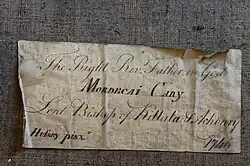 The Right Rev. Father in God
Mordecai Cary
Lord Bishop of Killala & Achonry
pinx.t 1746